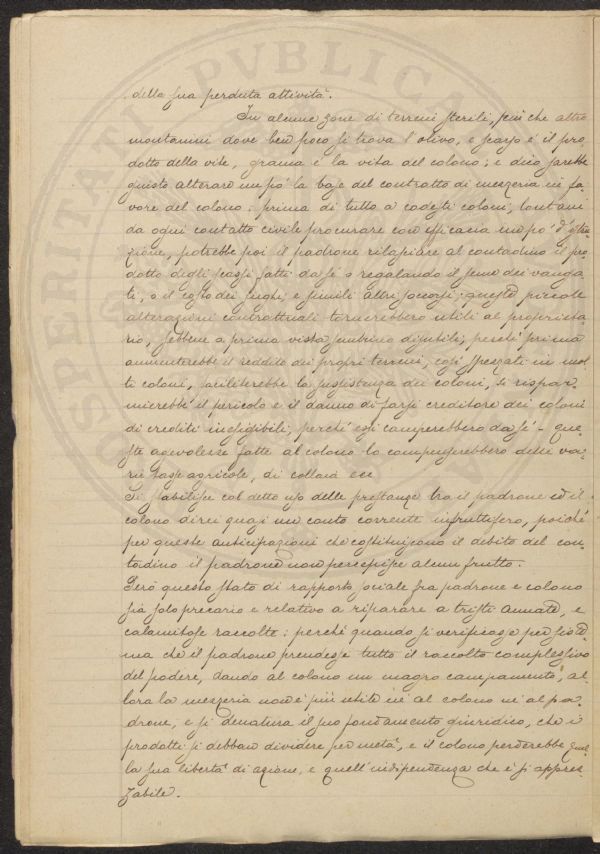 della sua perduta attività.
In alcune zone di terreni sterili, più che altro
montanini dove ben poco si trova l'olivo, e scarso è il pro
dotto della vite, grama è la vita del colono; e dico sarebbe
giusto alterare un po' la base del contratto di mezzeria in fa
vore del colono: prima di tutto a codesti coloni, lontani
da ogni contatto civile procurare con efficacia un po' d'istru
zione, potrebbe poi il padrone rilasciare al contadino il pro
dotto degli scassi fatti da se o regalando il seme dei vanga
ti, o il costo dei sughi, e simili altri soccorsi; queste piccole
alterazioni contrattuali tornerebbero utili al proprieta
rio, sebbene a prima vista sembrino disutili, perché prima
aumenterebbe il reddito dei propri terreni, così spezzati in mol
te colonie, faciliterebbe la sussistenza dei coloni, si rispar
mierebbe il pericolo e il danno di farsi creditore dei coloni
di crediti inesigibili, perché essi camperebbero da sé - que
ste agevolezze fatte al colono lo compenserebbero delle va
rie tasse agricole, di collaia ecc
Si stabilisce col detto uso delle prestanze tra il padrone ed il
colono direi quasi un conto corrente infruttifero, poiché
per queste anticipazioni che costituiscono il debito del con
tadino il padrone non percepisce alcun frutto.
Però questo stato di rapporto sociale fra padrone e colono
sia solo precario e relativo a riparare a tristi annate, e
calamitose raccolte: perché quando si verificasse per siste
ma che il padrone prendesse tutto il raccolto complessivo
del podere, dando al colono un magro campamento, al
lora la mezzeria non è più utile né al colono né al pa
drone, e si denatura il suo fondamento giuridico, che i
prodotti si debban dividere per metà, e il colono perderebbe quel
la sua libertà di azione, e quell'indipendenza che è sì apprez
zabile.
PROSPERITATI PVBLICAE